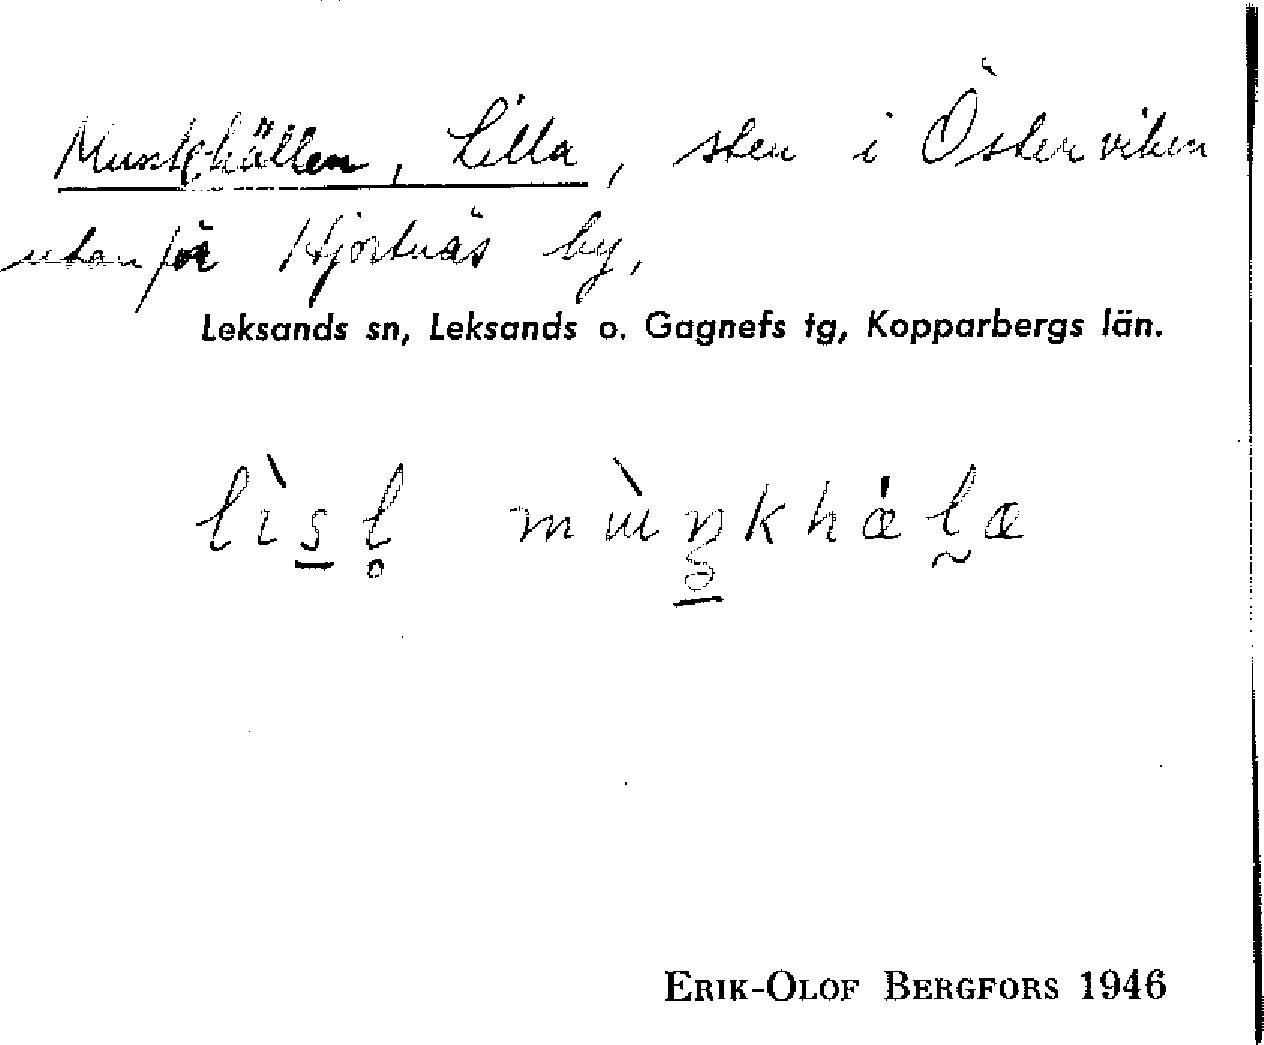 Munkhällen, Lilla, sten i Österviken
utanför Hjortnäs by,
Leksands sn, Leksands o. Gagnefs tg, Kopparbergs län.
ERIK-OLOF BERGFORS 1946